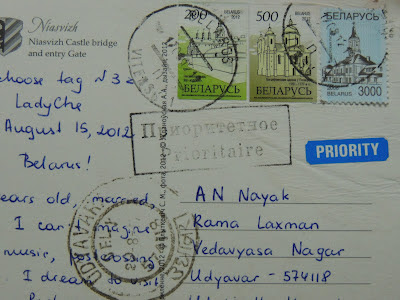 Niasvizh
Niasvizh Castle bridge
and entry Gate
200
БЕЛАРУСЬ
500
БЕЛАРУСЬ
БЕЛАРУСЬ
BELARUS
3000
choose tag №3 a
LadyChe
August 15, 2012
Belarus!
ears old, married
I can't imagine
music, postcrossing
I dream to visit
Приоритетное
Prioritaire
PRIORITY
A N Nayak
Rama Laxman
Vedavyasa Nagar
Udyavar - 574118